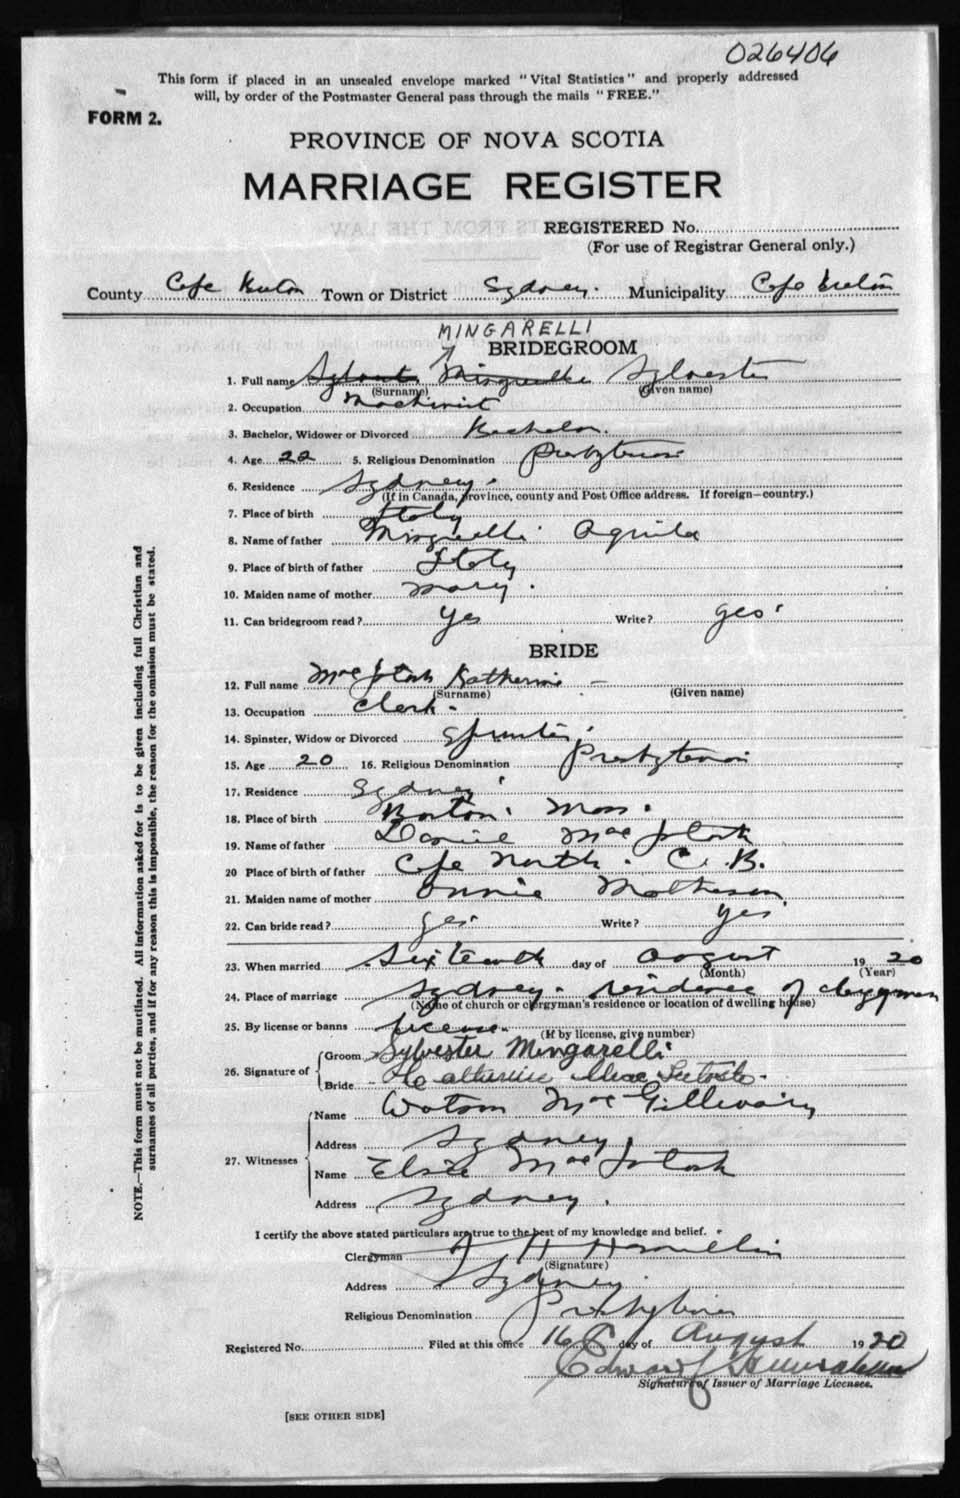 026406
This form if placed in an unsealed envelope marked "Vital Statistics" and properly addressed
will, by order of the Postmaster General pass through the mails "FREE."
FORM 2.
PROVINCE OF NOVA SCOTIA
MARRIAGE REGISTER
REGISTERED No.
(For use of Registrar General only.)
County Cape Breton Town or District Sydney. Municipality Cape Breton
MINGARELLI
BRIDEGROOM
1. Full name Sylvester
(Surname) (Given name)
2. Occupation Machinist
3. Bachelor, Widower or Divorced Bachelor.
4. Age 22 5. Religious Denomination Presbyterian
6. Residence Sydney.
(If in Canada, province, county and Post Office address. If foreign—country.)
7. Place of birth Italy
8. Name of father Aquila
9. Place of birth of father Italy
10. Maiden name of mother Mary.
11. Can bridegroom read? Yes Write? Yes
BRIDE
12. Full name MacIntosh Katherine —
(Surname) (Given name)
13. Occupation Clerk.
14. Spinster, Widow or Divorced Spinster
15. Age 20 16. Religious Denomination Presbyterian
17. Residence Sydney
18. Place of birth Boston. Mass.
19. Name of father Daniel MacIntosh
20 Place of birth of father Cape North. C. B.
21. Maiden name of mother Annie Matheson
22. Can bride read? Yes Write? Yes
23. When married Sixteenth day of August 1920
(Month) (Year)
24. Place of marriage Sydney. residence of clergyman
(Name of church or clergyman's residence or location of dwelling house)
25. By license or banns License.
(If by license, give number)
26. Signature of Groom Sylvester Mingarelli
Bride Katherine MacIntosh.
27. Witnesses Name Watson MacGillivary
Address Sydney.
Name Elsie MacIntosh
Address Sydney.
I certify the above stated particulars are true to the best of my knowledge and belief.
Clergyman
(Signature)
Address Sydney
Religious Denomination Presbyterian
Registered No. Filed at this office 16 day of August 1920
Edward
Signature of Issuer of Marriage Licenses.
[SEE OTHER SIDE]
NOTE.—This form must not be mutilated. All information asked for is to be given including full Christian and
surnames of all parties, and if for any reason this is impossible, the reason for the omission must be stated.